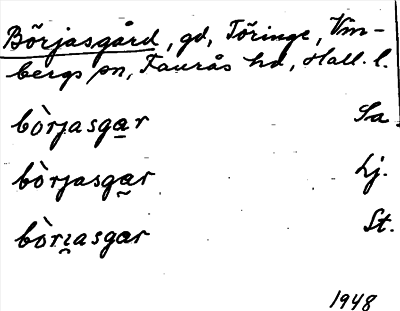 Börjasgård, gd, Töringe, Vin-
bergs sn, Faurås hd, Hall. l.
bòrjasgar Sa
bòrjasga̰r Lj.
bòri̯asgar St.
1948